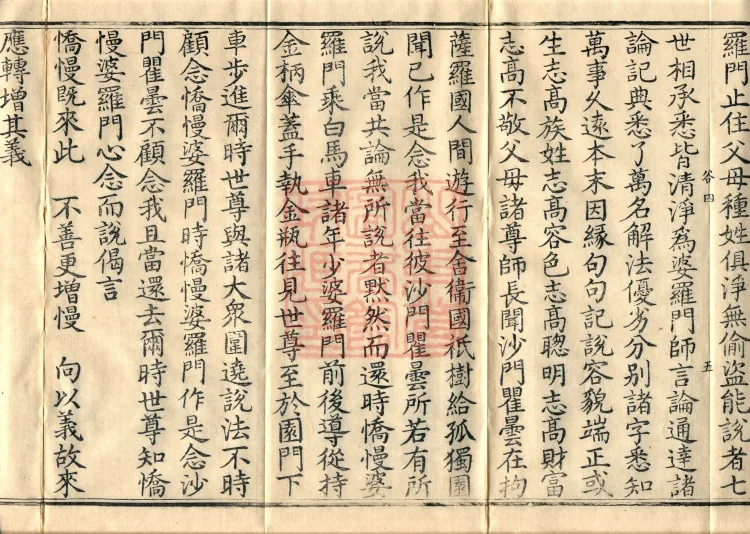 羅門止住父母種姓俱淨無偷盜能說者七
世相承悉皆清淨為婆羅門師言論通達諸
谷四
五
論記典悉了萬名解法優劣分別諸字悉知
萬事久遠本末因緣句句記說容貌端正或
生志高族姓志高容色志高聰明志高財富
志高不敬父母諸尊師長聞沙門瞿曇在拘
薩羅國人間遊行至舍衛國祇樹給孤獨園
聞已作是念我當往彼沙門瞿曇所若有所
說我當共論無所說者默然而還時憍慢婆
羅門乘白馬車諸年少婆羅門前後導從持
金柄傘蓋手執金瓶往見世尊至於園門下
車步進爾時世尊與諸大眾圍遶說法不時
顧念憍慢婆羅門時憍慢婆羅門作是念沙
門瞿曇不顧念我且當還去爾時世尊知憍
慢婆羅門心念而說偈言
憍慢既來此 不善更增慢 向以義故來
應轉增其義